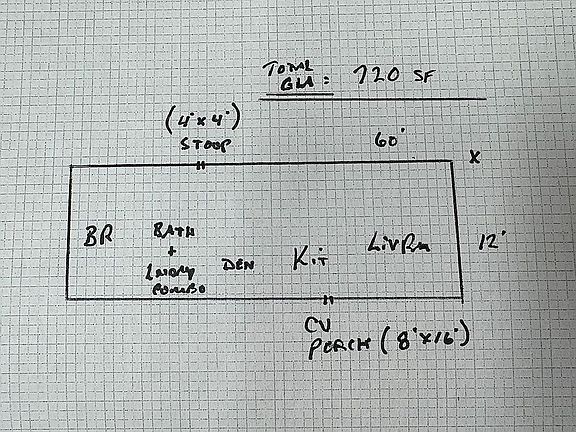 TOTAL
GLA : 720 SF
(4' x 4')
STOOP
60'
X
12'
BR
BATH
+
LNDRY
COMBO
DEN
KIT
LIVRM
CV
PORCH (8' x 16')